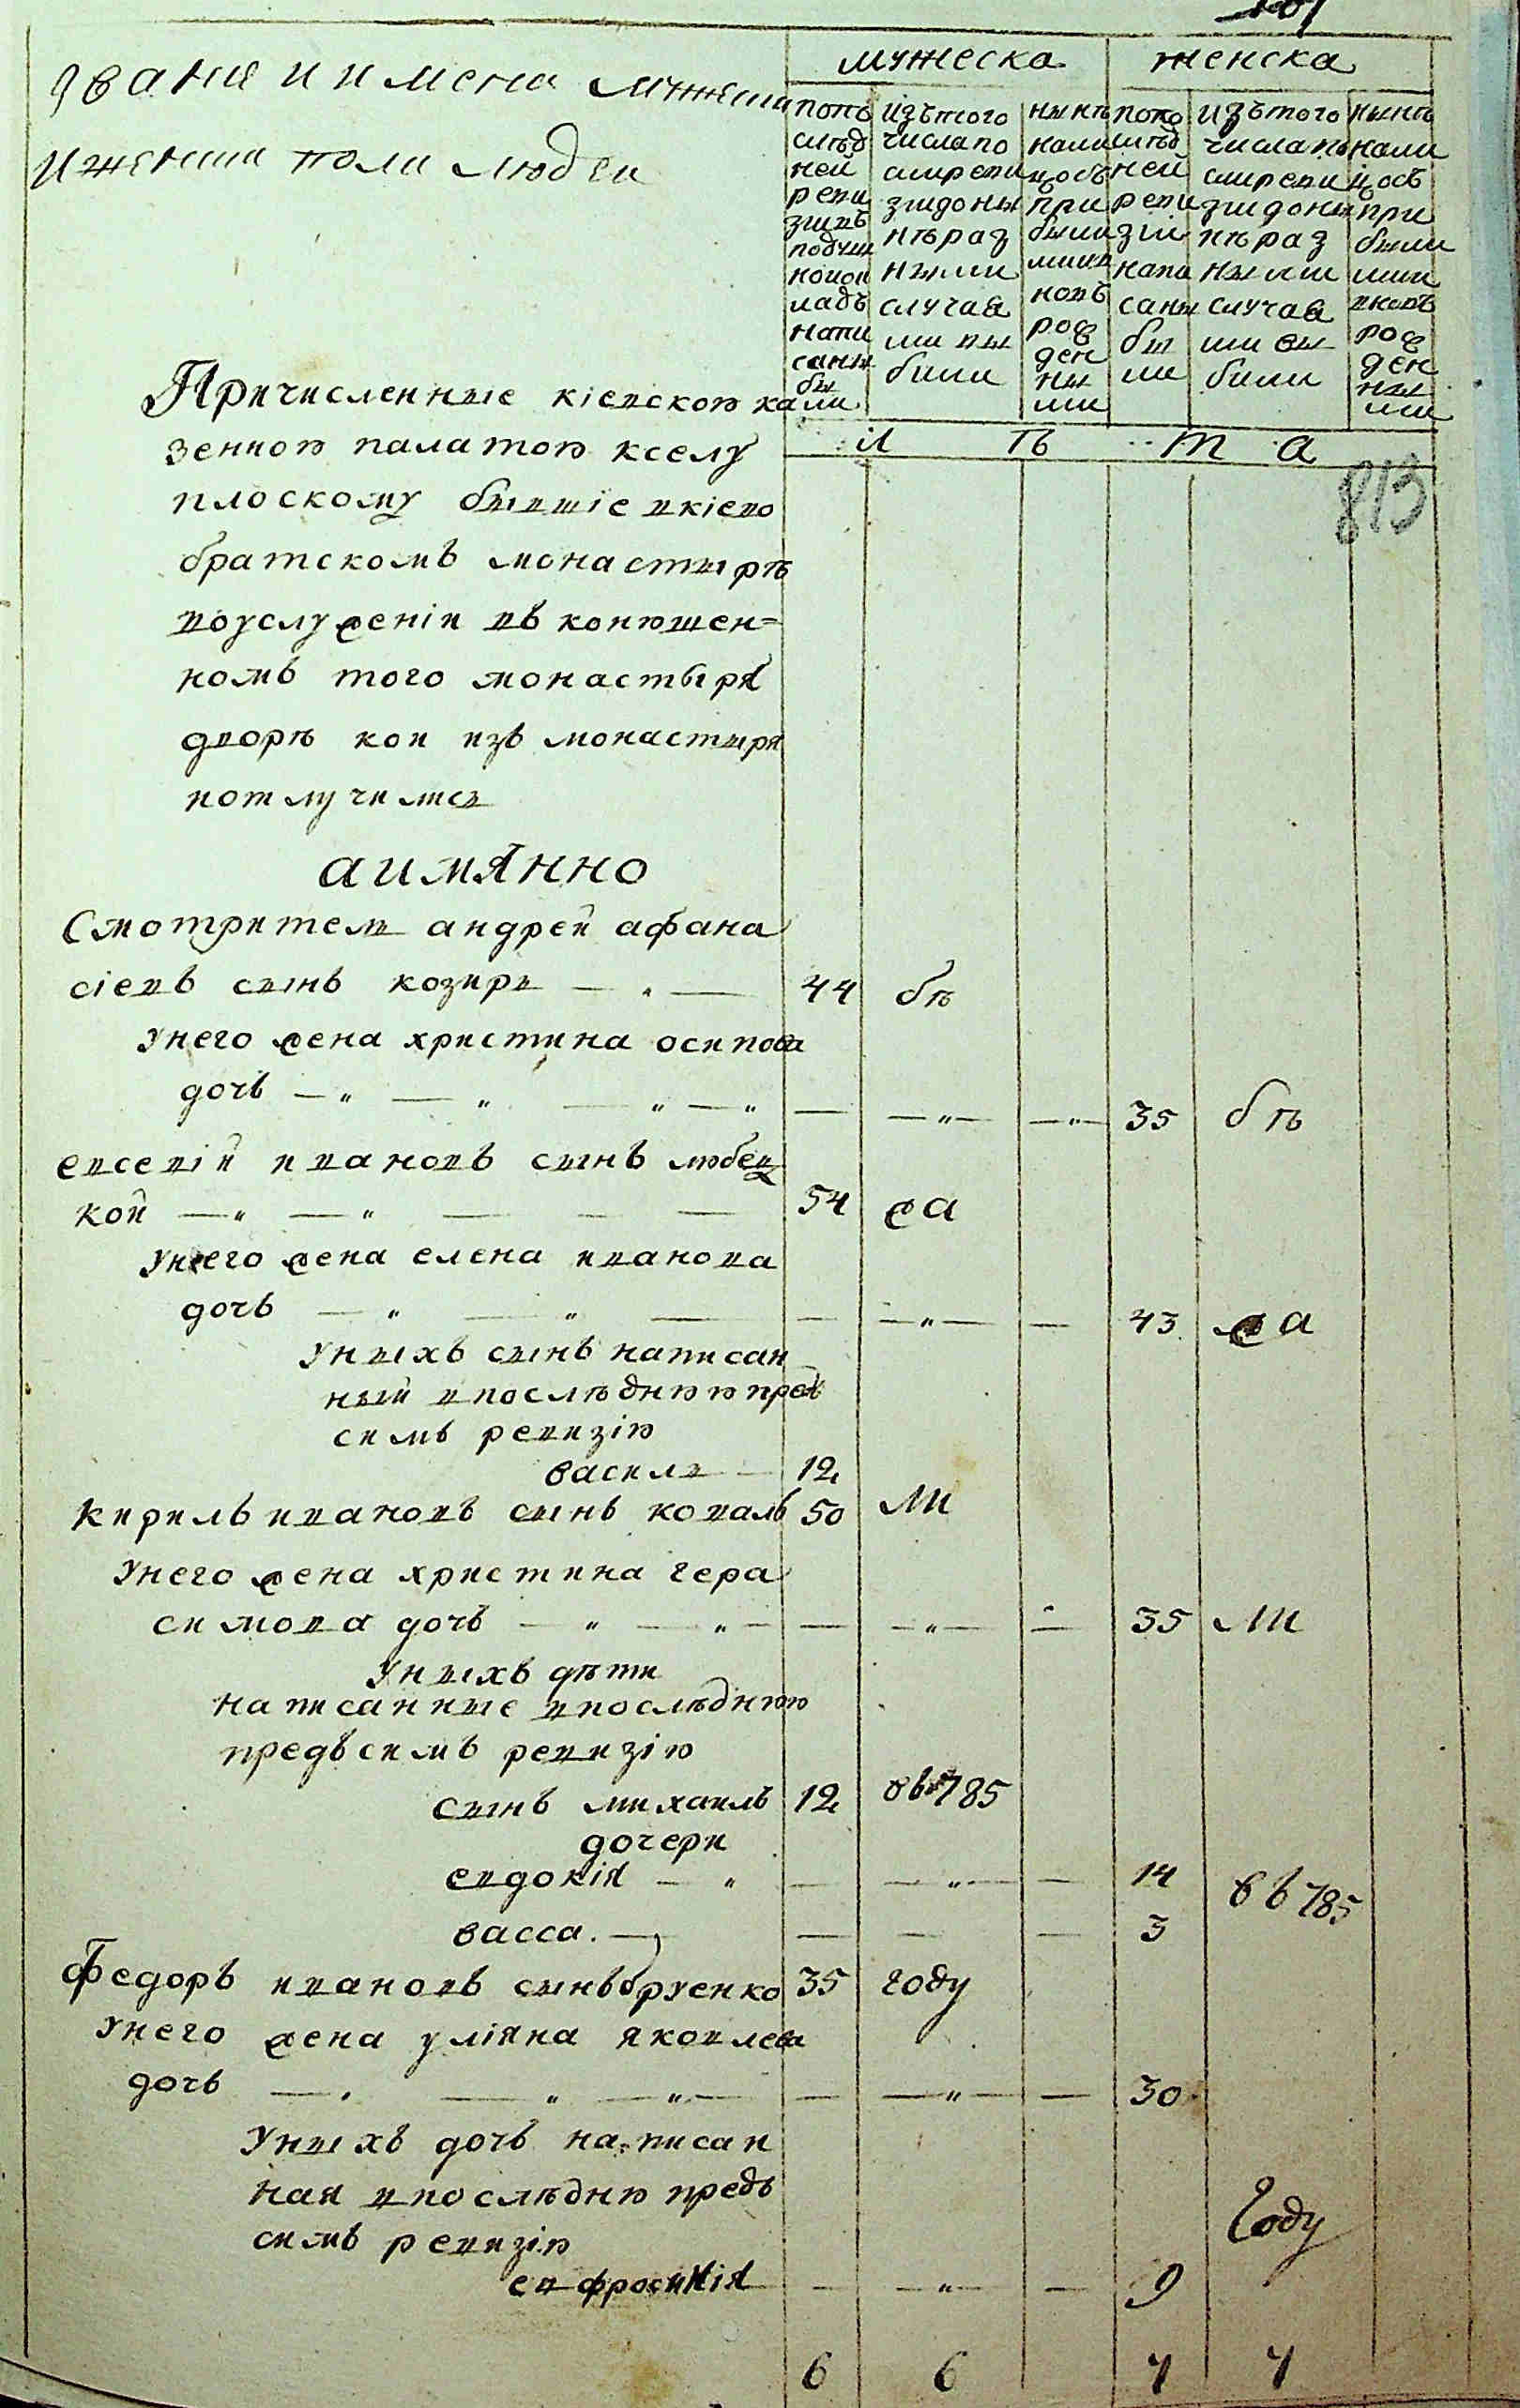 мужеска женска
званія и имена мужеска
и женска пола людеи
попо
слѣд
ней
реви
зіивъ
подуш
номок
ладѣ
напи
саны
бы
ли
изътого
числапо
слѣреви
зіидоны
нѣраз
ными
случая
ми вы
были
нынѣ
нали
цосъ
при
были
ми и
новъ
рож
ден
ны
ми
попо
слѣд
ней
реви
зіи
напи
саны
бы
ли
изътого
числапо
слѣреви
зіидоны
нѣраз
ными
случая
ми вы
были
нынѣ
нали
цосъ
при
были
ми и
вновъ
рож
ден
ны
ми
Причисленные кіевскою ка
зенною палатою кселу
л ѣ т а
813
плоскому бывшіе вкіево
братскомъ монастырѣ
воуслуженіи въ конюшен=
номъ того монастыря
дворѣ кои изъ монастыря
иотлучились
а имянно
Смотритель андрей афана
сіевъ сынъ козырь 44 бѣ
унего жена христина осипова
дочь 35 бѣ
евсевій ивановъ сынъ любец
кой 54 жа
унего жена елена иванова
дочь 43 жа
уныхъ сынъ написан
ный впослѣднюю пред
симъ ревизію
василь 12
кирилъ ивановъ сынъ коваль 50 ли
унего жена христина гера
симова дочь 35 ли
уныхъ дѣти
написанные впослѣднюю
предъсимъ ревизію
сынъ михаилъ 12 въ785
дочери
евдокія 14 въ785
васса. 3
Федоръ ивановъ сынъбруенко 35 году
унего жена уліяна яковлева
дочь 30
уныхъ дочь написан
ная впослѣдню предъ
симъ ревизію году
евфросинія 9
6 6 7 7